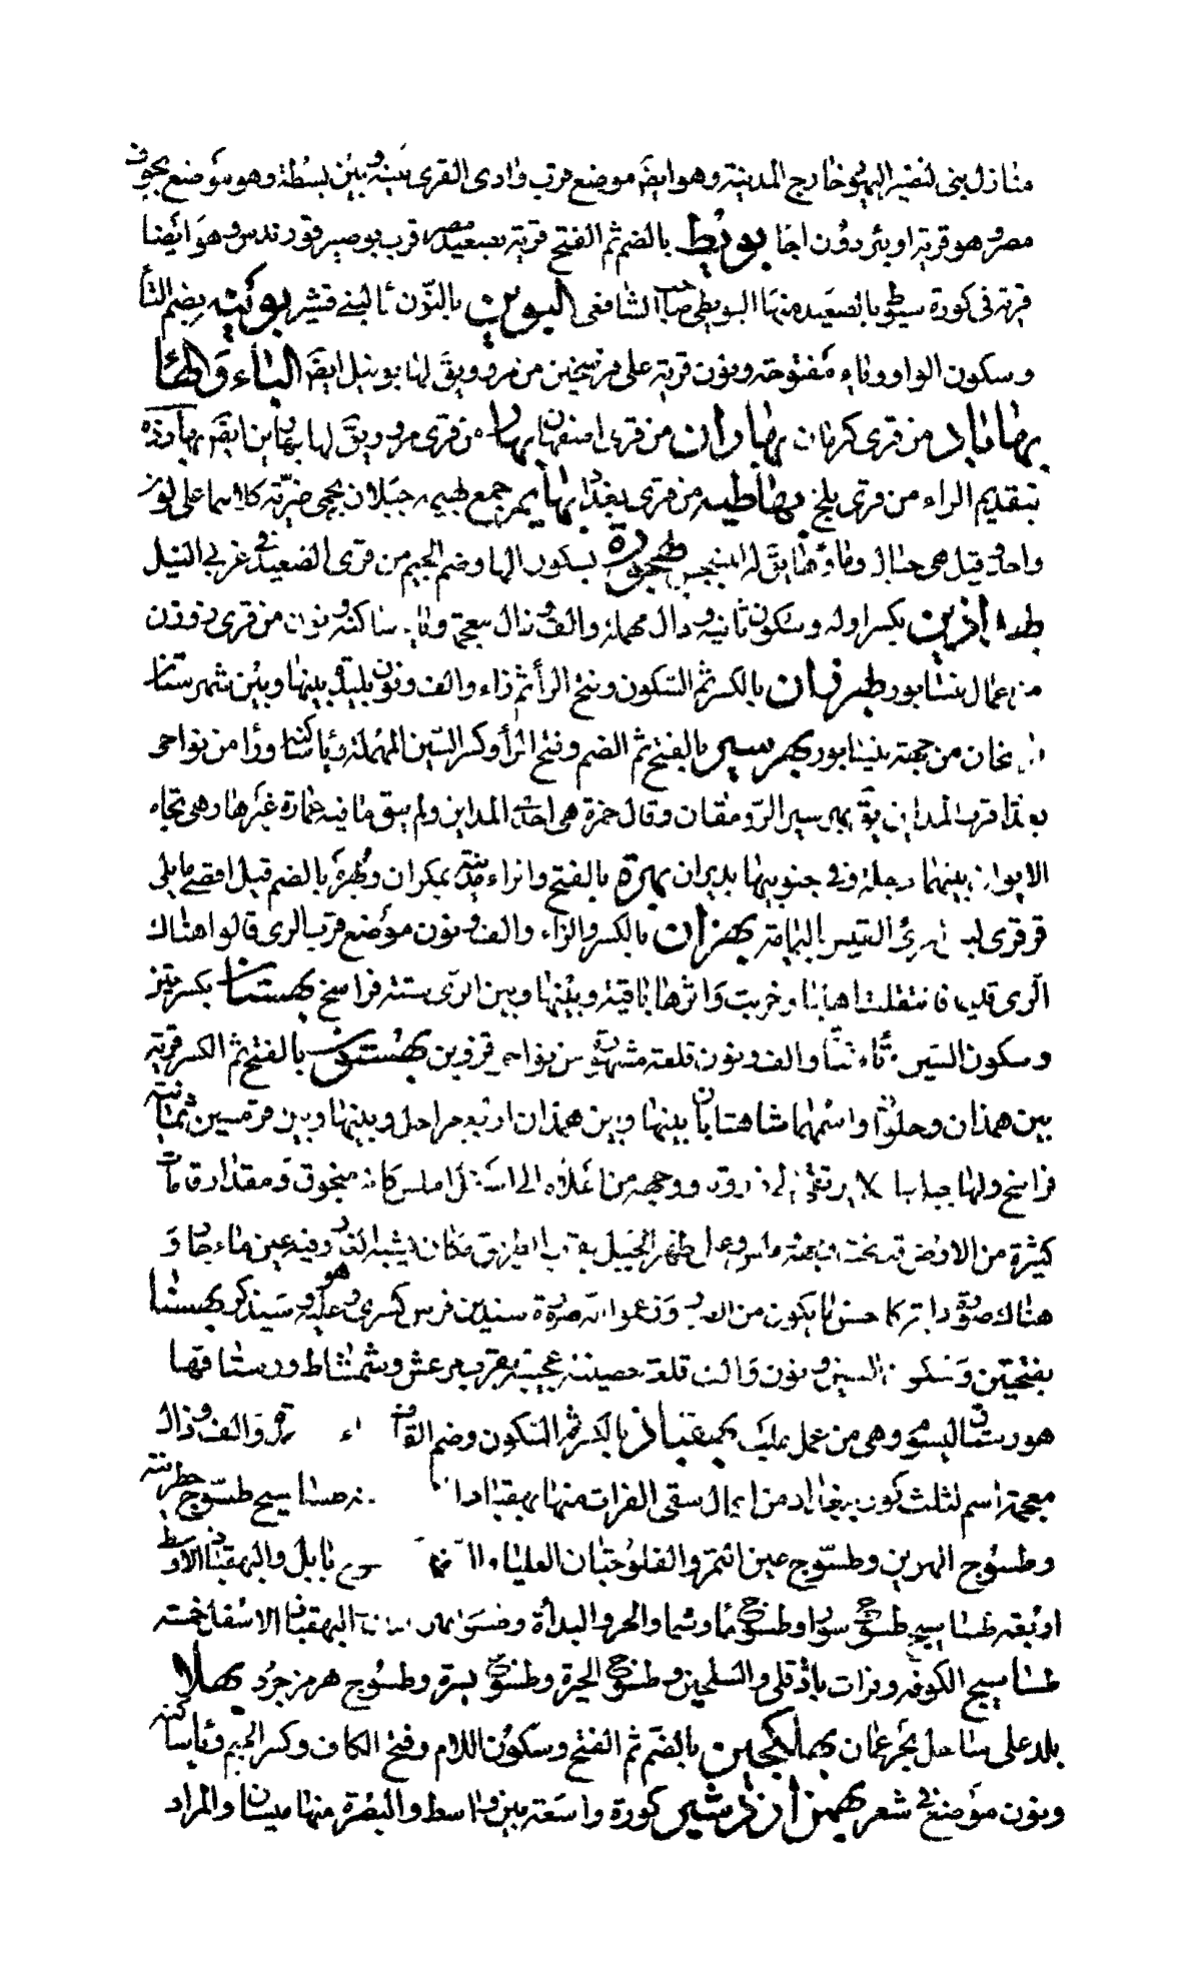 منازل بنى لنضير اليهود خارج المدينة وهو ايضَ موضع قرب وادى القرى بينه وبين بسطة وهو موضع بحوف
مصر وهو قرية او بئر دون اجا بويط بالضم ثم الفتح قرية بصعيد مصر قرب بوصير قوريدس وهو ايضا
قرية فى كورة سيوط بالصعيد منها البويطى صاحب الشافعى البوين بالنون ماء لبنى قشير بوينه بضم الباء
وسكون الواو وياء مفتوحة ونون قرية على فرسخين من مرو ويق لها بوينك ايضَ الباء والهاء
بهاباد من قرى كرمان بهاران من قرى اصفهان بهار من قرى مرو ويقَ لها بهارين ايضَ
بتقديم الراء من قرى بلخ بهاطية من قرى بغداد بهايم جمع بهيمه جبلان بحمى ضرية كلاهما على لون
واحد وقيل هى جبال وماؤها يقَ له المنبجس بهجورة بسكون الها وضم الجيم من قرى الصعيد فى غربى النيل
بهداذين بكسر اوله وسكون ثانيه ودال مهملة والف وذال معجمة وياء ساكنة ونون من قرى زوزن
من اعمال نيسابور بهرزان بالكسر ثم السكون وفتح الراء ثم زاء والف ونون بليدة بينها وبين شهرستان
من جهة نيسابور بهرسير بالفتح ثم الضم وفتح الراء وكسر السين المهملة وياء ساكنة وراء من نواحى
بغداد قرب المدائن يقَ بهرسير الرومقان وقال حمزة هى احدى المدائن ولم يبق ما فيه عمارة غيرها وهى تجاه
الايوان بينهما دجلة وفى جنوبيها بديران بهرة بالفتح والراء مدينة بمكران وبهرة بالضم قيل اقصى ما يلى
قرقرى امرئ القيس باليمامة بهزان بالكسر والزاء والف ونون موضع قرب الرى قالوا هناك
الرى قديما فانتقلت اهلها وخربت واثرها باقية وبينها وبين الرى ستة فراسخ بهستان بكسرتين
وسكون السين وتاء مثناة والف ونون قلعة مشهورة من نواحى قزوين بهستون بالفتح ثم الكسر قرية
بين همذان وحلوان واسمها ساهتابان بينها وبين همذان اربع مراحل وبينها وبين قرمسين ثمانية
فراسخ ولها جبل لا يرتقى الى ذروته ووجهه من اعلاه الى اسفله املس كانه منحوت ومقدار قامات
كثيرة من الارض قد نحت وجهه وملس وعلى ظهر الجبل بقرب الطريق مكان يشبه الغار وفيه عين ماء جار و
هناك صورة دابة كاحسن ما يكون من الصور وزعموا انه صورة سبديز فرس كسرى وهو عليه وسيذكر بهسنا
بفتحتين وسكون السين ونون والف قلعة حصينة عجيبة بقرب مرعش وسميساط ورستاقها
هو رستاق كيسوم وهى من عمل حلب بهقباذ بالكسر ثم السكون وضم القاف والف وذال
معجمة اسم لثلث كور ببغداد من اعمال سقى الفرات منها بهقباذ طساسيج طسوج خطرنية
وطسوج النهرين وطسوج عين التمر والفلوجتان العليا وال بابل والبهقباذ الاوسط
اربعة طساسيج طسوج سورا وطسوج باروسما والجبة والبداة والبهقباذ الاسفل خمسة
طساسيج الكوفة وفرات بادقلى والسيلحين وطسوج الحيرة وطسوج نستر وطسوج هرمزجرد بهلا
بلد على ساحل بحر عمان بهلكجين بالضم ثم الفتح وسكون اللام وفتح الكاف وكسر الجيم وياء ساكنة
ونون موضع فى شعر بهمن اردشير كورة واسعة بين واسط والبصرة منها ميسان والمراد